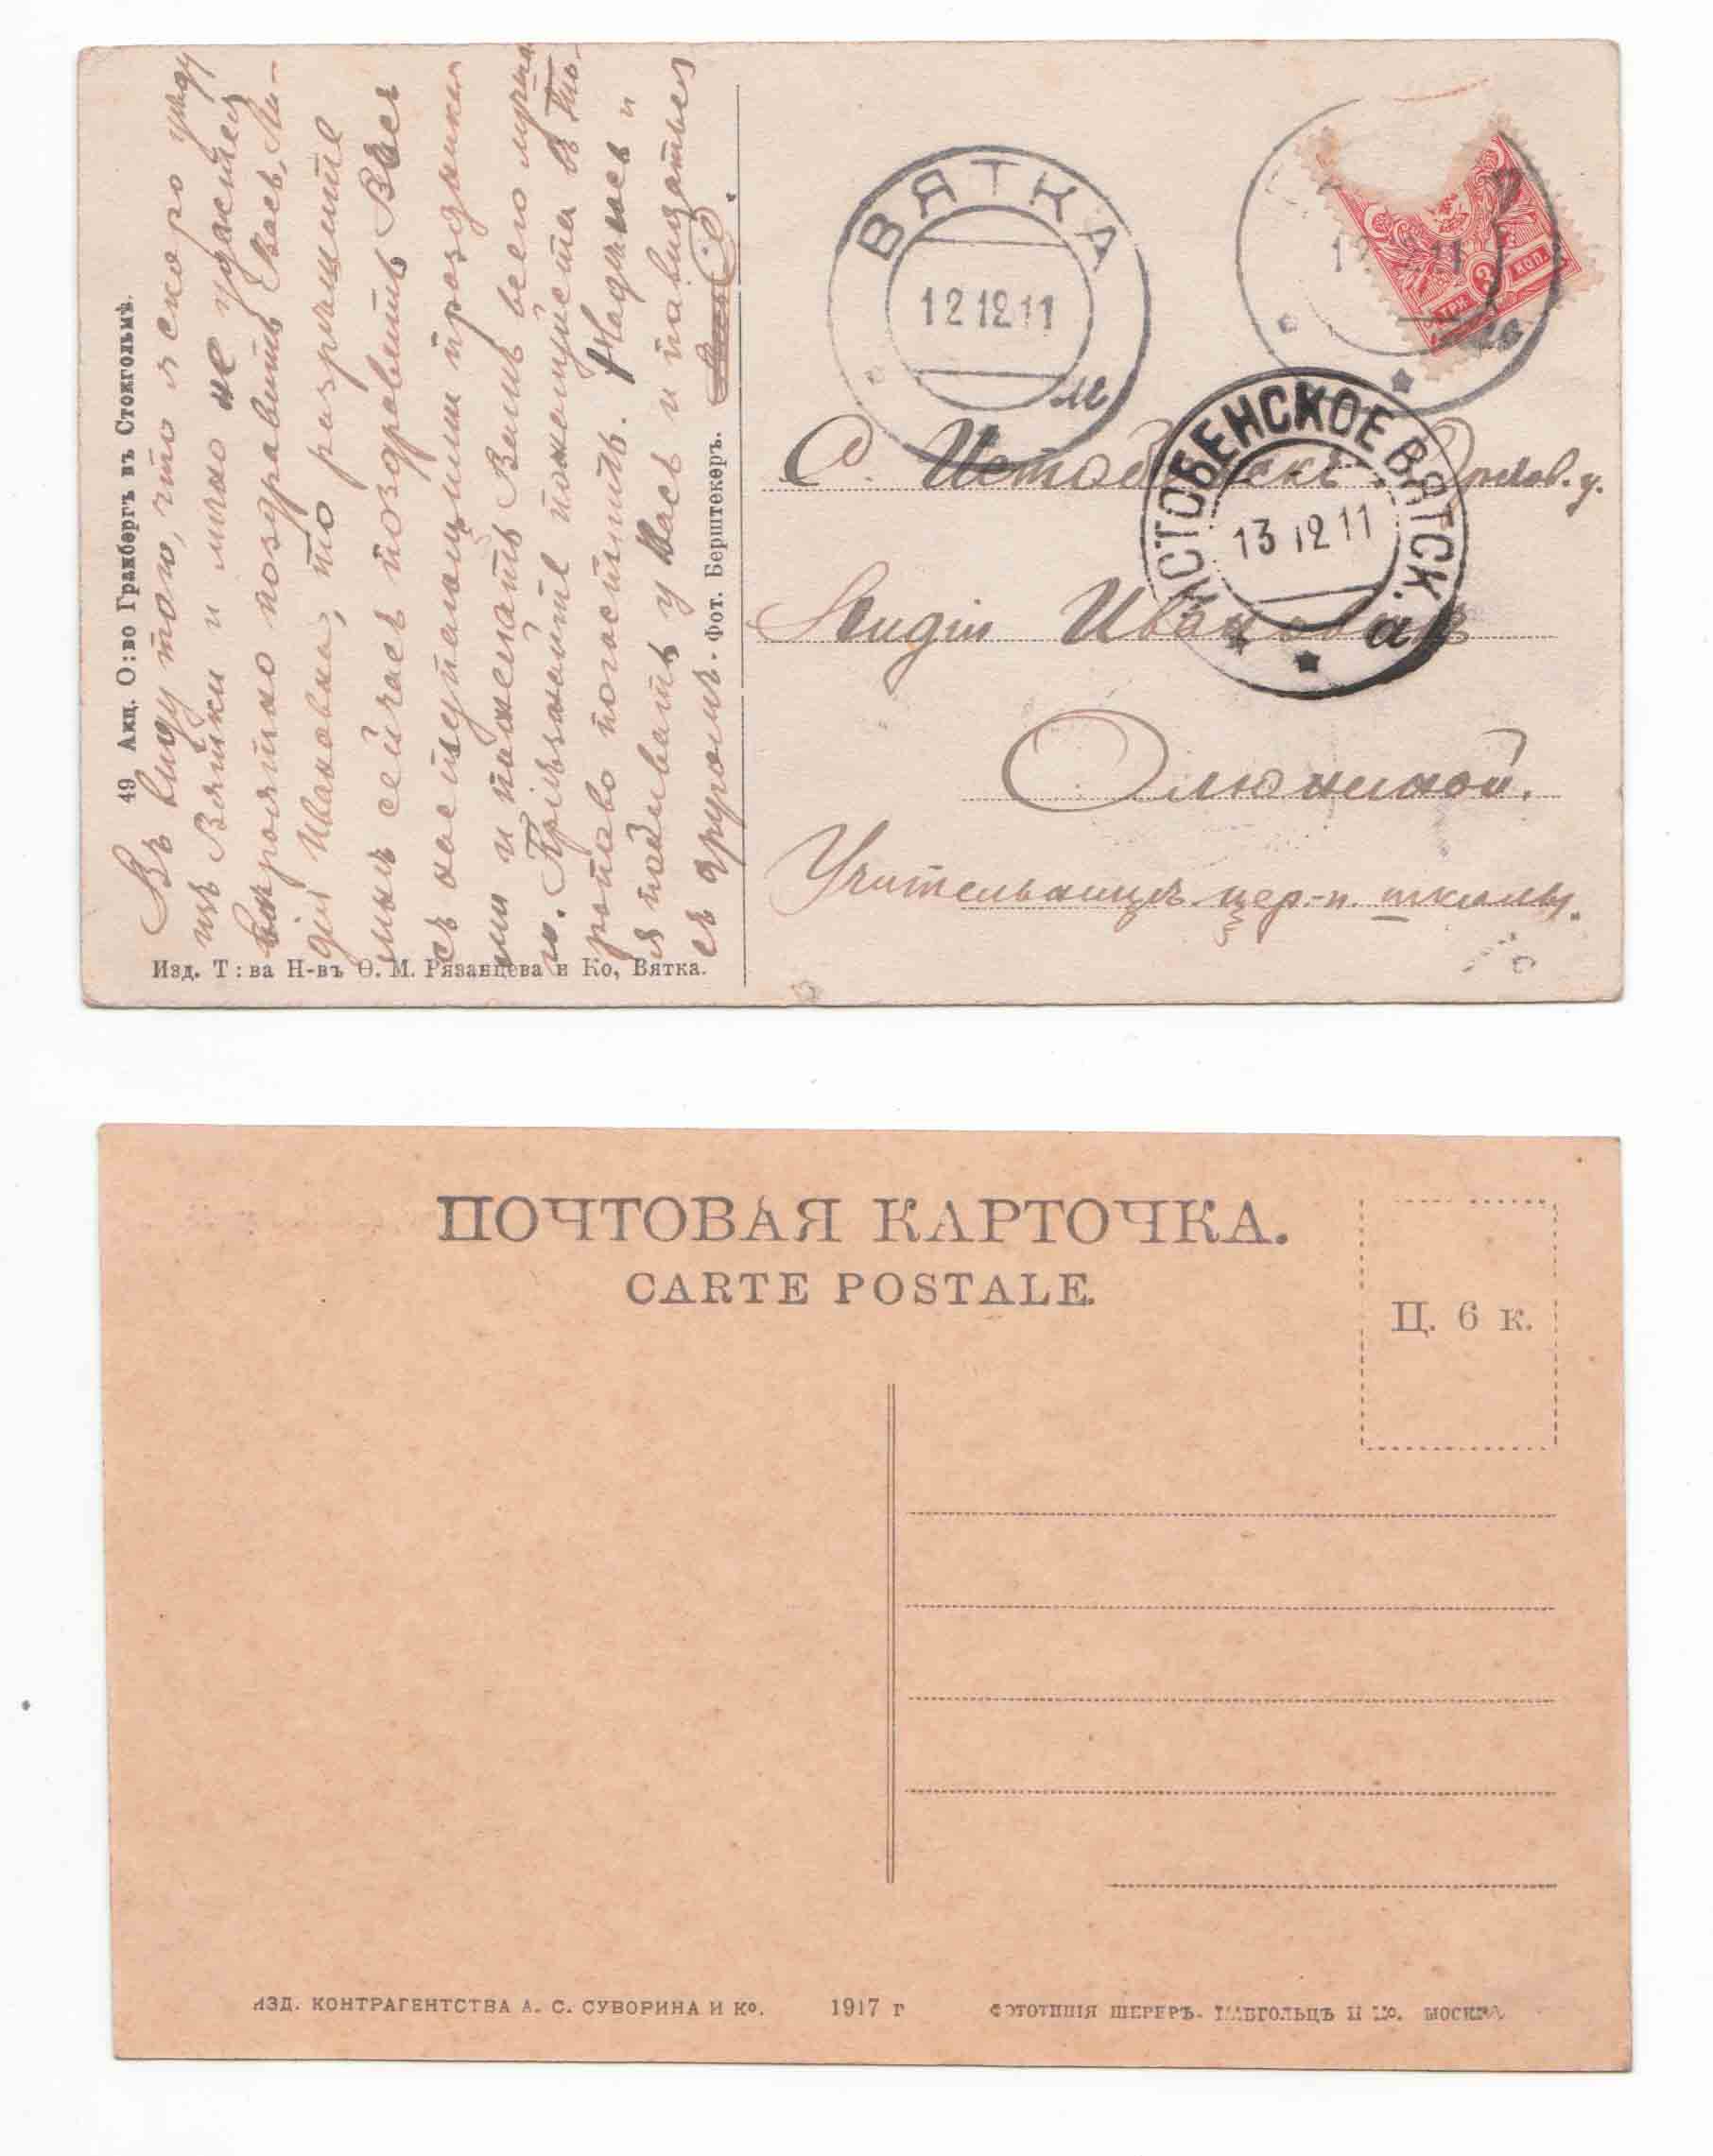 49 Акц. О:во Гранбергъ въ Стокгольмѣ.
Въ виду того, что я скоро уѣду
изъ Вятки и лично не удастся
вѣроятно поздравить Васъ, Ли-
дія Ивановна, то разрѣшите
мнѣ сейчасъ поздравить Васъ
съ наступающими праздника
ми и пожелать Вамъ всего лучша
го. Пріѣзжайте пожалуйста в
погостить. Надѣюсь и
я побывать у Васъ и повидаться
съ
Изд. Т:ва Н-въ Ѳ. М. Рязанцева и Ко, Вятка.
Фот. Берштекеръ.
ВЯТКА
12 12 11
м
3 КОП.
ИСТОБЕНСКОЕ ВЯТСК.
13 12 11
а
С. Истобенское Орлов. у.
Лидіи Ивановнѣ
Олюниной.
Учительницѣ цер.-п. школы.
ПОЧТОВАЯ КАРТОЧКА.
CARTE POSTALE.
Ц. 6 к.
ИЗД. КОНТРАГЕНТСТВА А. С. СУВОРИНА И Ко. 1917 г ФОТОТИПІЯ ШЕРЕРЪ, НАБГОЛЬЦЪ И Ко. МОСКВА